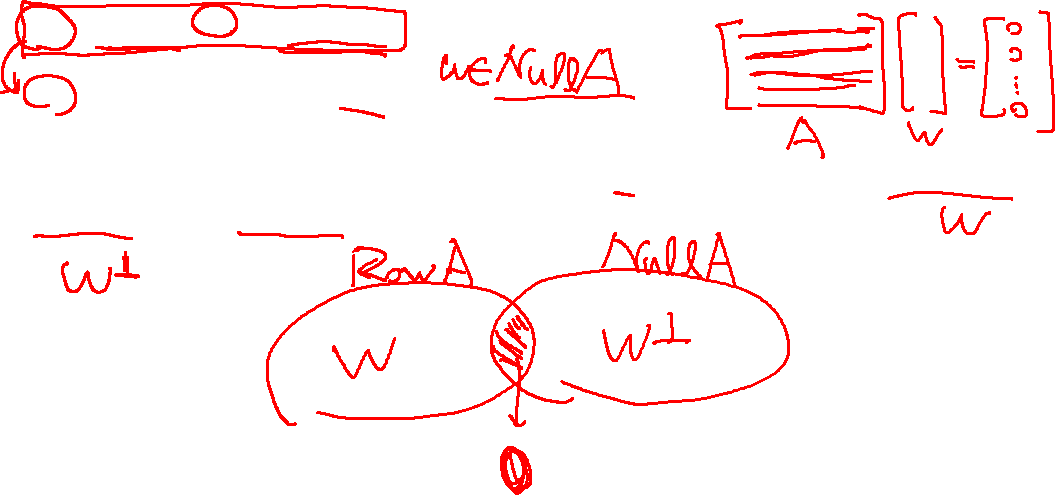 w∈NullA
[ ] [ ] = [0 0 ... 0]
A w
W
W⊥
RowA NullA
W W⊥
0